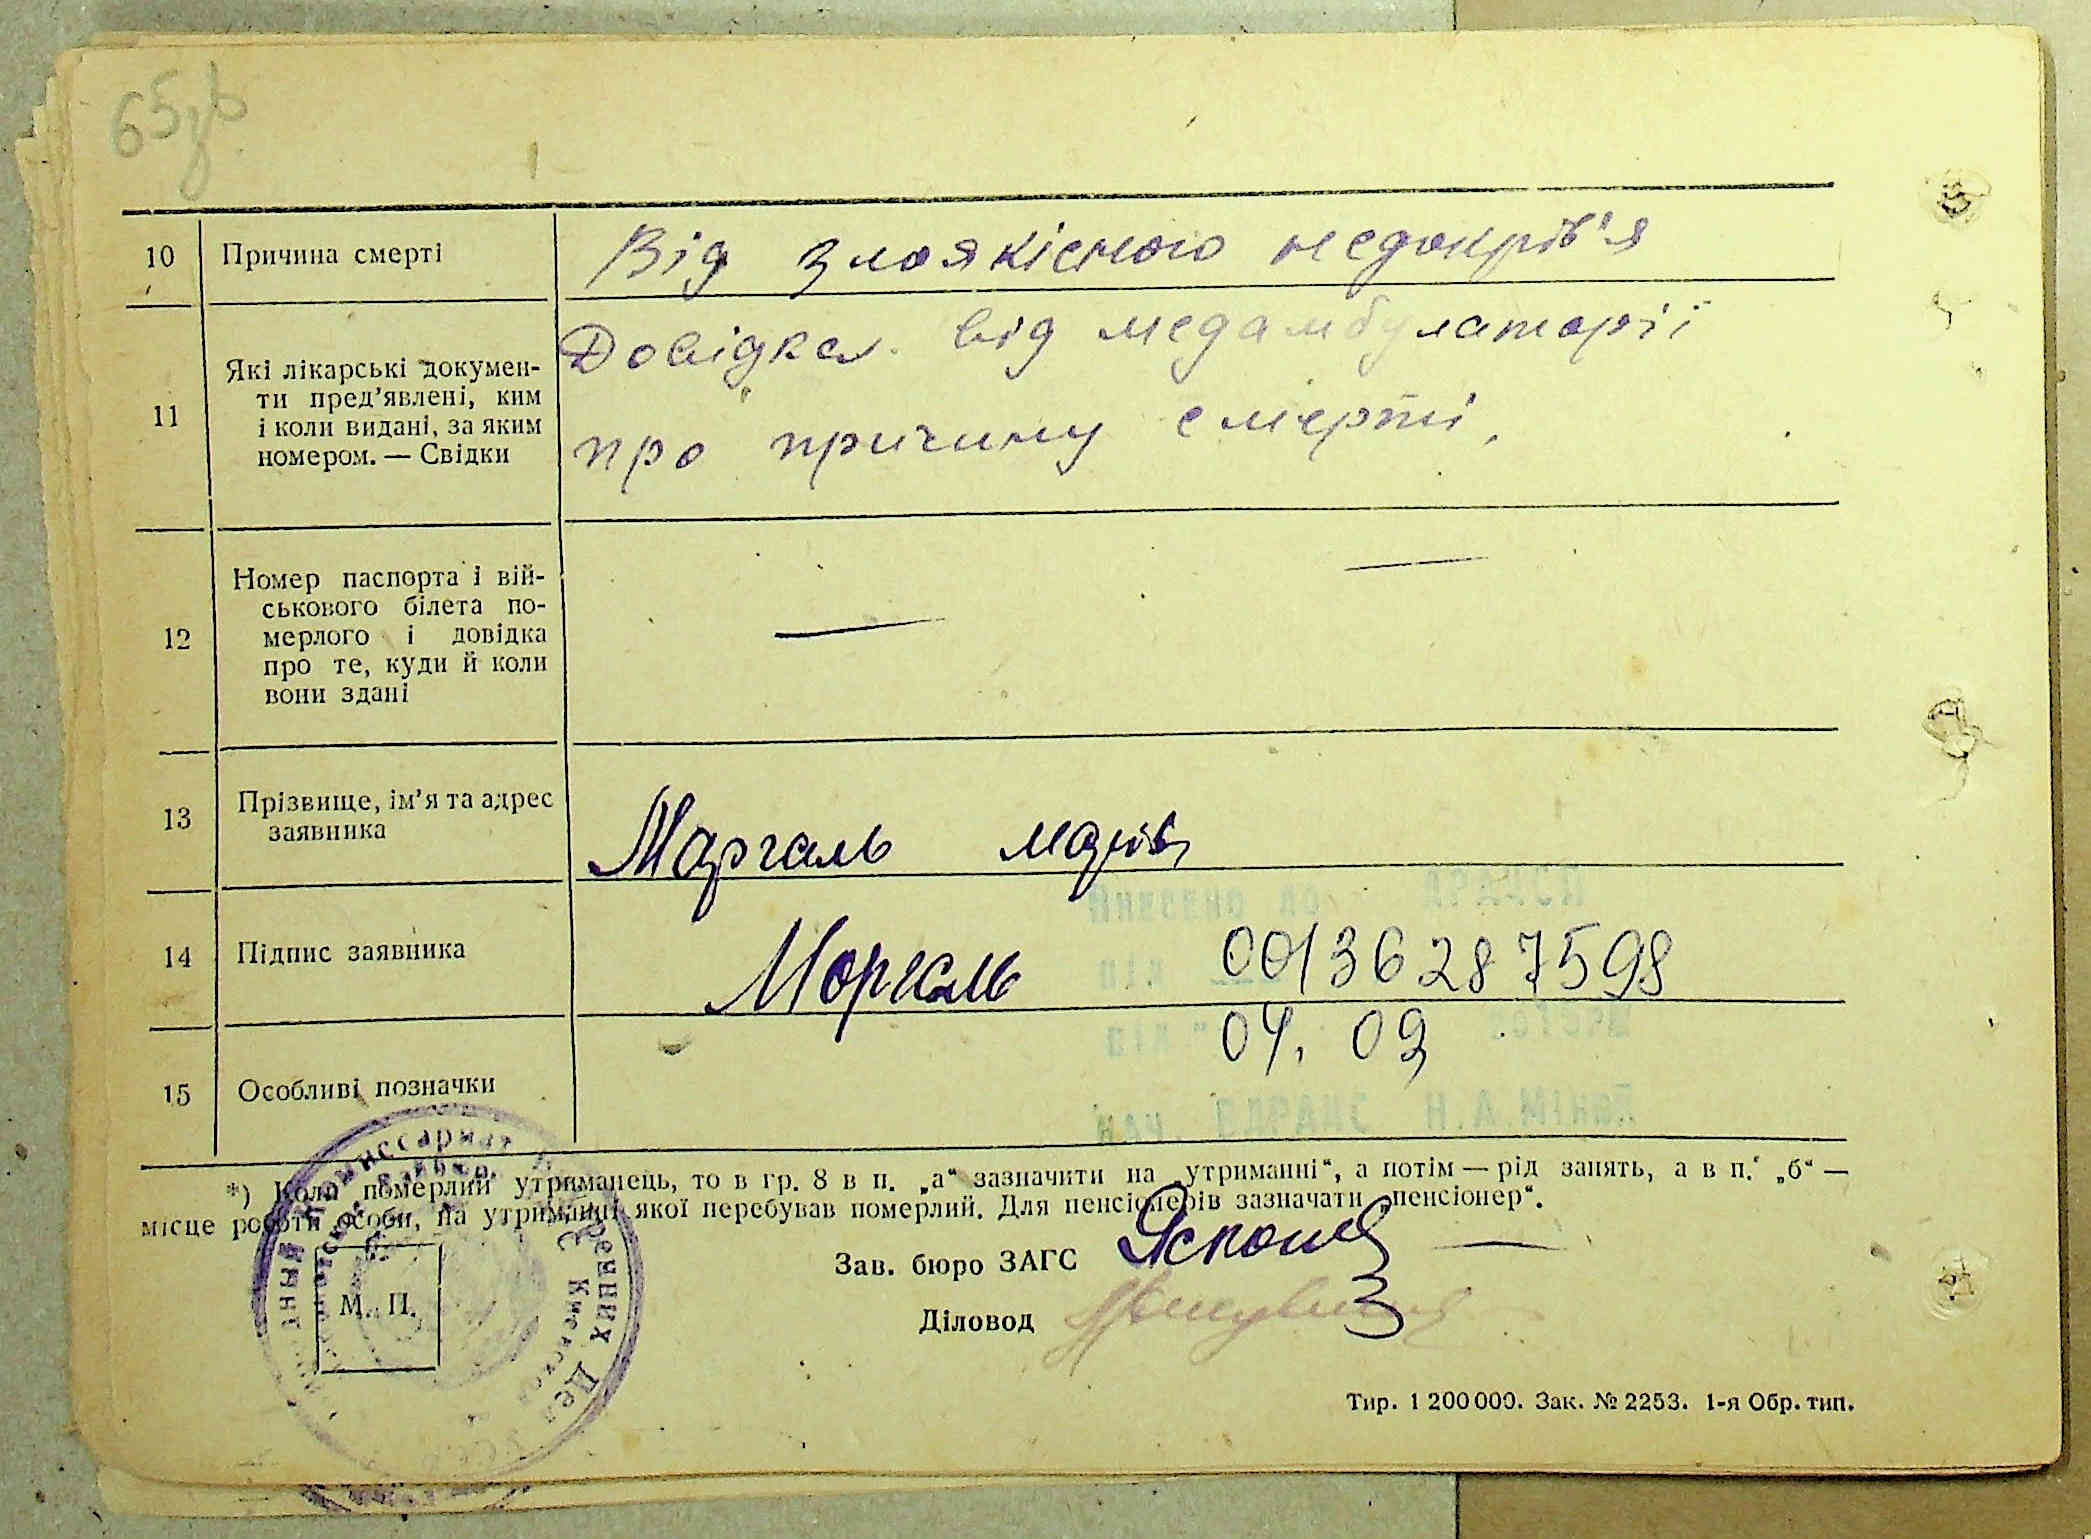 65зв
10 Причина смерті Від злоякісного недокрів'я
11 Які лікарські докумен-
ти пред'явлені, ким
і коли видані, за яким
номером. — Свідки
Довідка від медамбулаторії
про причину смерті,
12 Номер паспорта і вій-
ськового білета по-
мерлого і довідка
про те, куди й коли
вони здані
— —
13 Прізвище, ім'я та адрес
заявника
Маргаль
Внесено до ДРАЦСЯ
14 Підпис заявника Маргаль 00136287598
від
04. 09
15 Особливі позначки
Нач ВДРАЦС Н.А.Мінай
*) Коли померлий утриманець, то в гр. 8 в п. „а“ зазначити на „утриманні“, а потім — рід занять, а в п. „б“ —
місце роботи особи, на утриманні якої перебував померлий. Для пенсіонерів зазначати „пенсіонер“.
Зав. бюро ЗАГС
М. П.
Діловод
Комиссариат Внутренних Дел
Тир. 1 200 000. Зак. № 2253. 1-я Обр. тип.